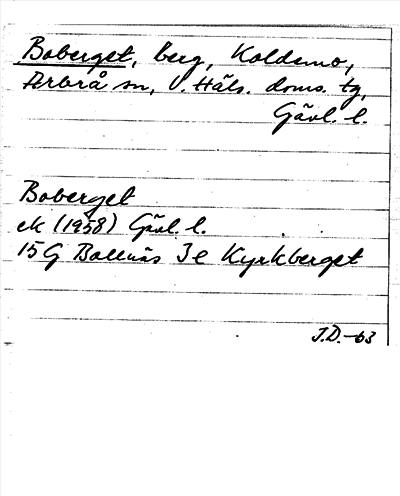 Boberget, berg, Koldemo,
Arbrå sn, V. Häls. doms. tg,
Gävl. l.
Boberget
ek (1958) Gävl. l.
15G Bollnäs 3e Kyrkberget
J.D.-63